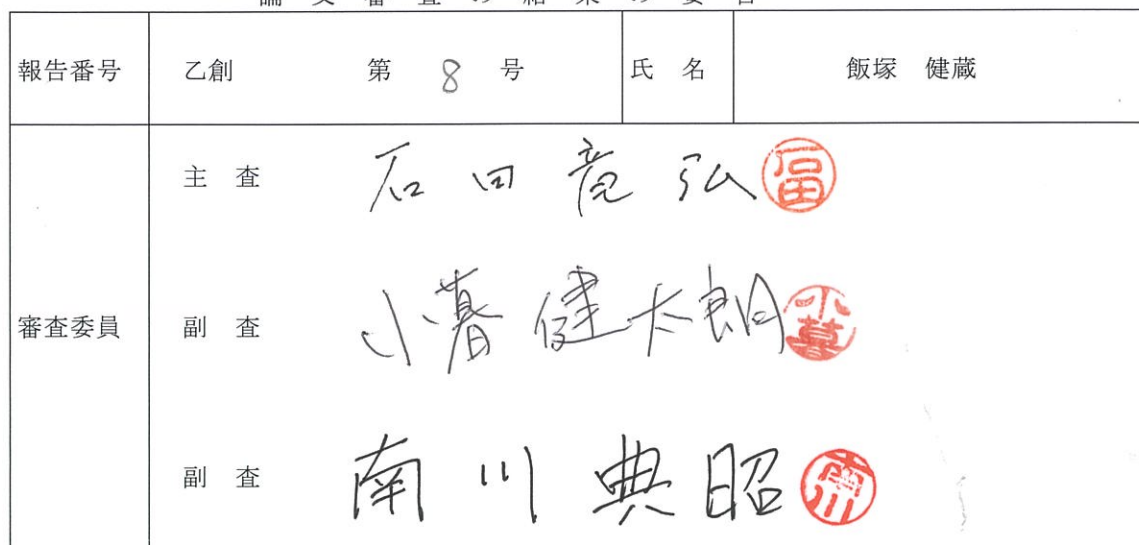 論文審査の結果の要旨
報告番号 乙創 第 8 号 氏名 飯塚 健蔵
主査 石田竜弘 石田
審査委員 副査 小暮健太朗 小暮
副査 南川典昭 南川